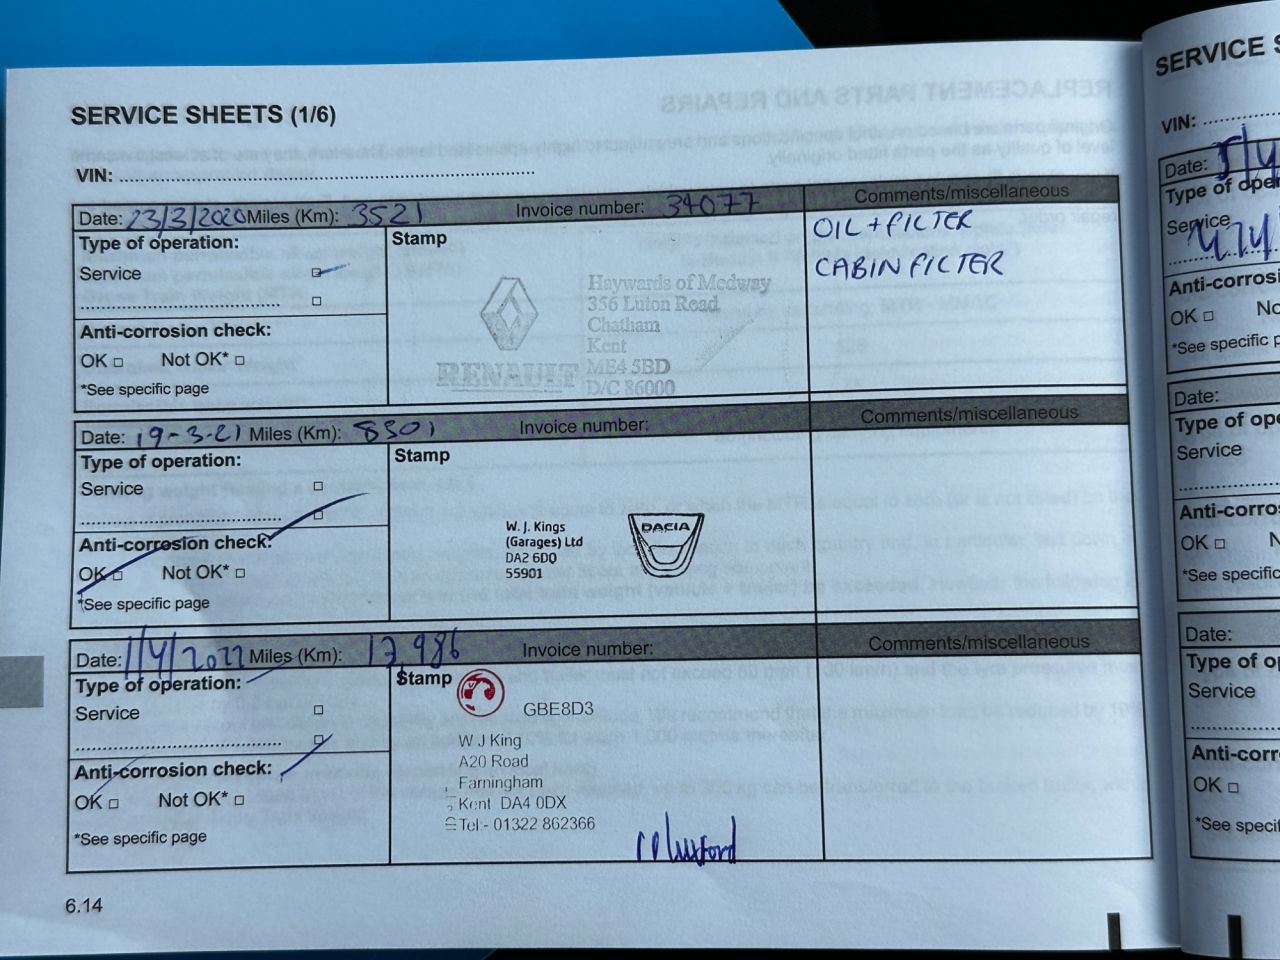 SERVICE SHEETS (1/6)
VIN:
Date: 23/3/2020 Miles (Km): 3521 Invoice number: 34077
Comments/miscellaneous
Type of operation:
Service
Anti-corrosion check:
OK Not OK*
*See specific page
Stamp
RENAULT
Haywards of Medway
356 Luton Road
Chatham
Kent
ME4 5BD
D/C 86000
OIL + FILTER
CABIN FILTER
Date: 19-3-21 Miles (Km): 8301 Invoice number:
Comments/miscellaneous
Type of operation:
Service
Anti-corrosion check:
OK Not OK*
*See specific page
Stamp
W. J. Kings
(Garages) Ltd
DA2 6DQ
55901
DACIA
Date: 1/4/2022 Miles (Km): 17,986 Invoice number:
Comments/miscellaneous
Type of operation:
Service
Anti-corrosion check:
OK Not OK*
*See specific page
Stamp
GBE8D3
W J King
A20 Road
Farningham
Kent DA4 0DX
Tel:- 01322 862366
6.14
SERVICE S
VIN:
Date:
Type of oper
Service
Anti-corrosi
OK
*See specific p
Date:
Type of ope
Service
Anti-corros
OK
*See specific
Date:
Type of op
Service
Anti-corr
OK
*See specif